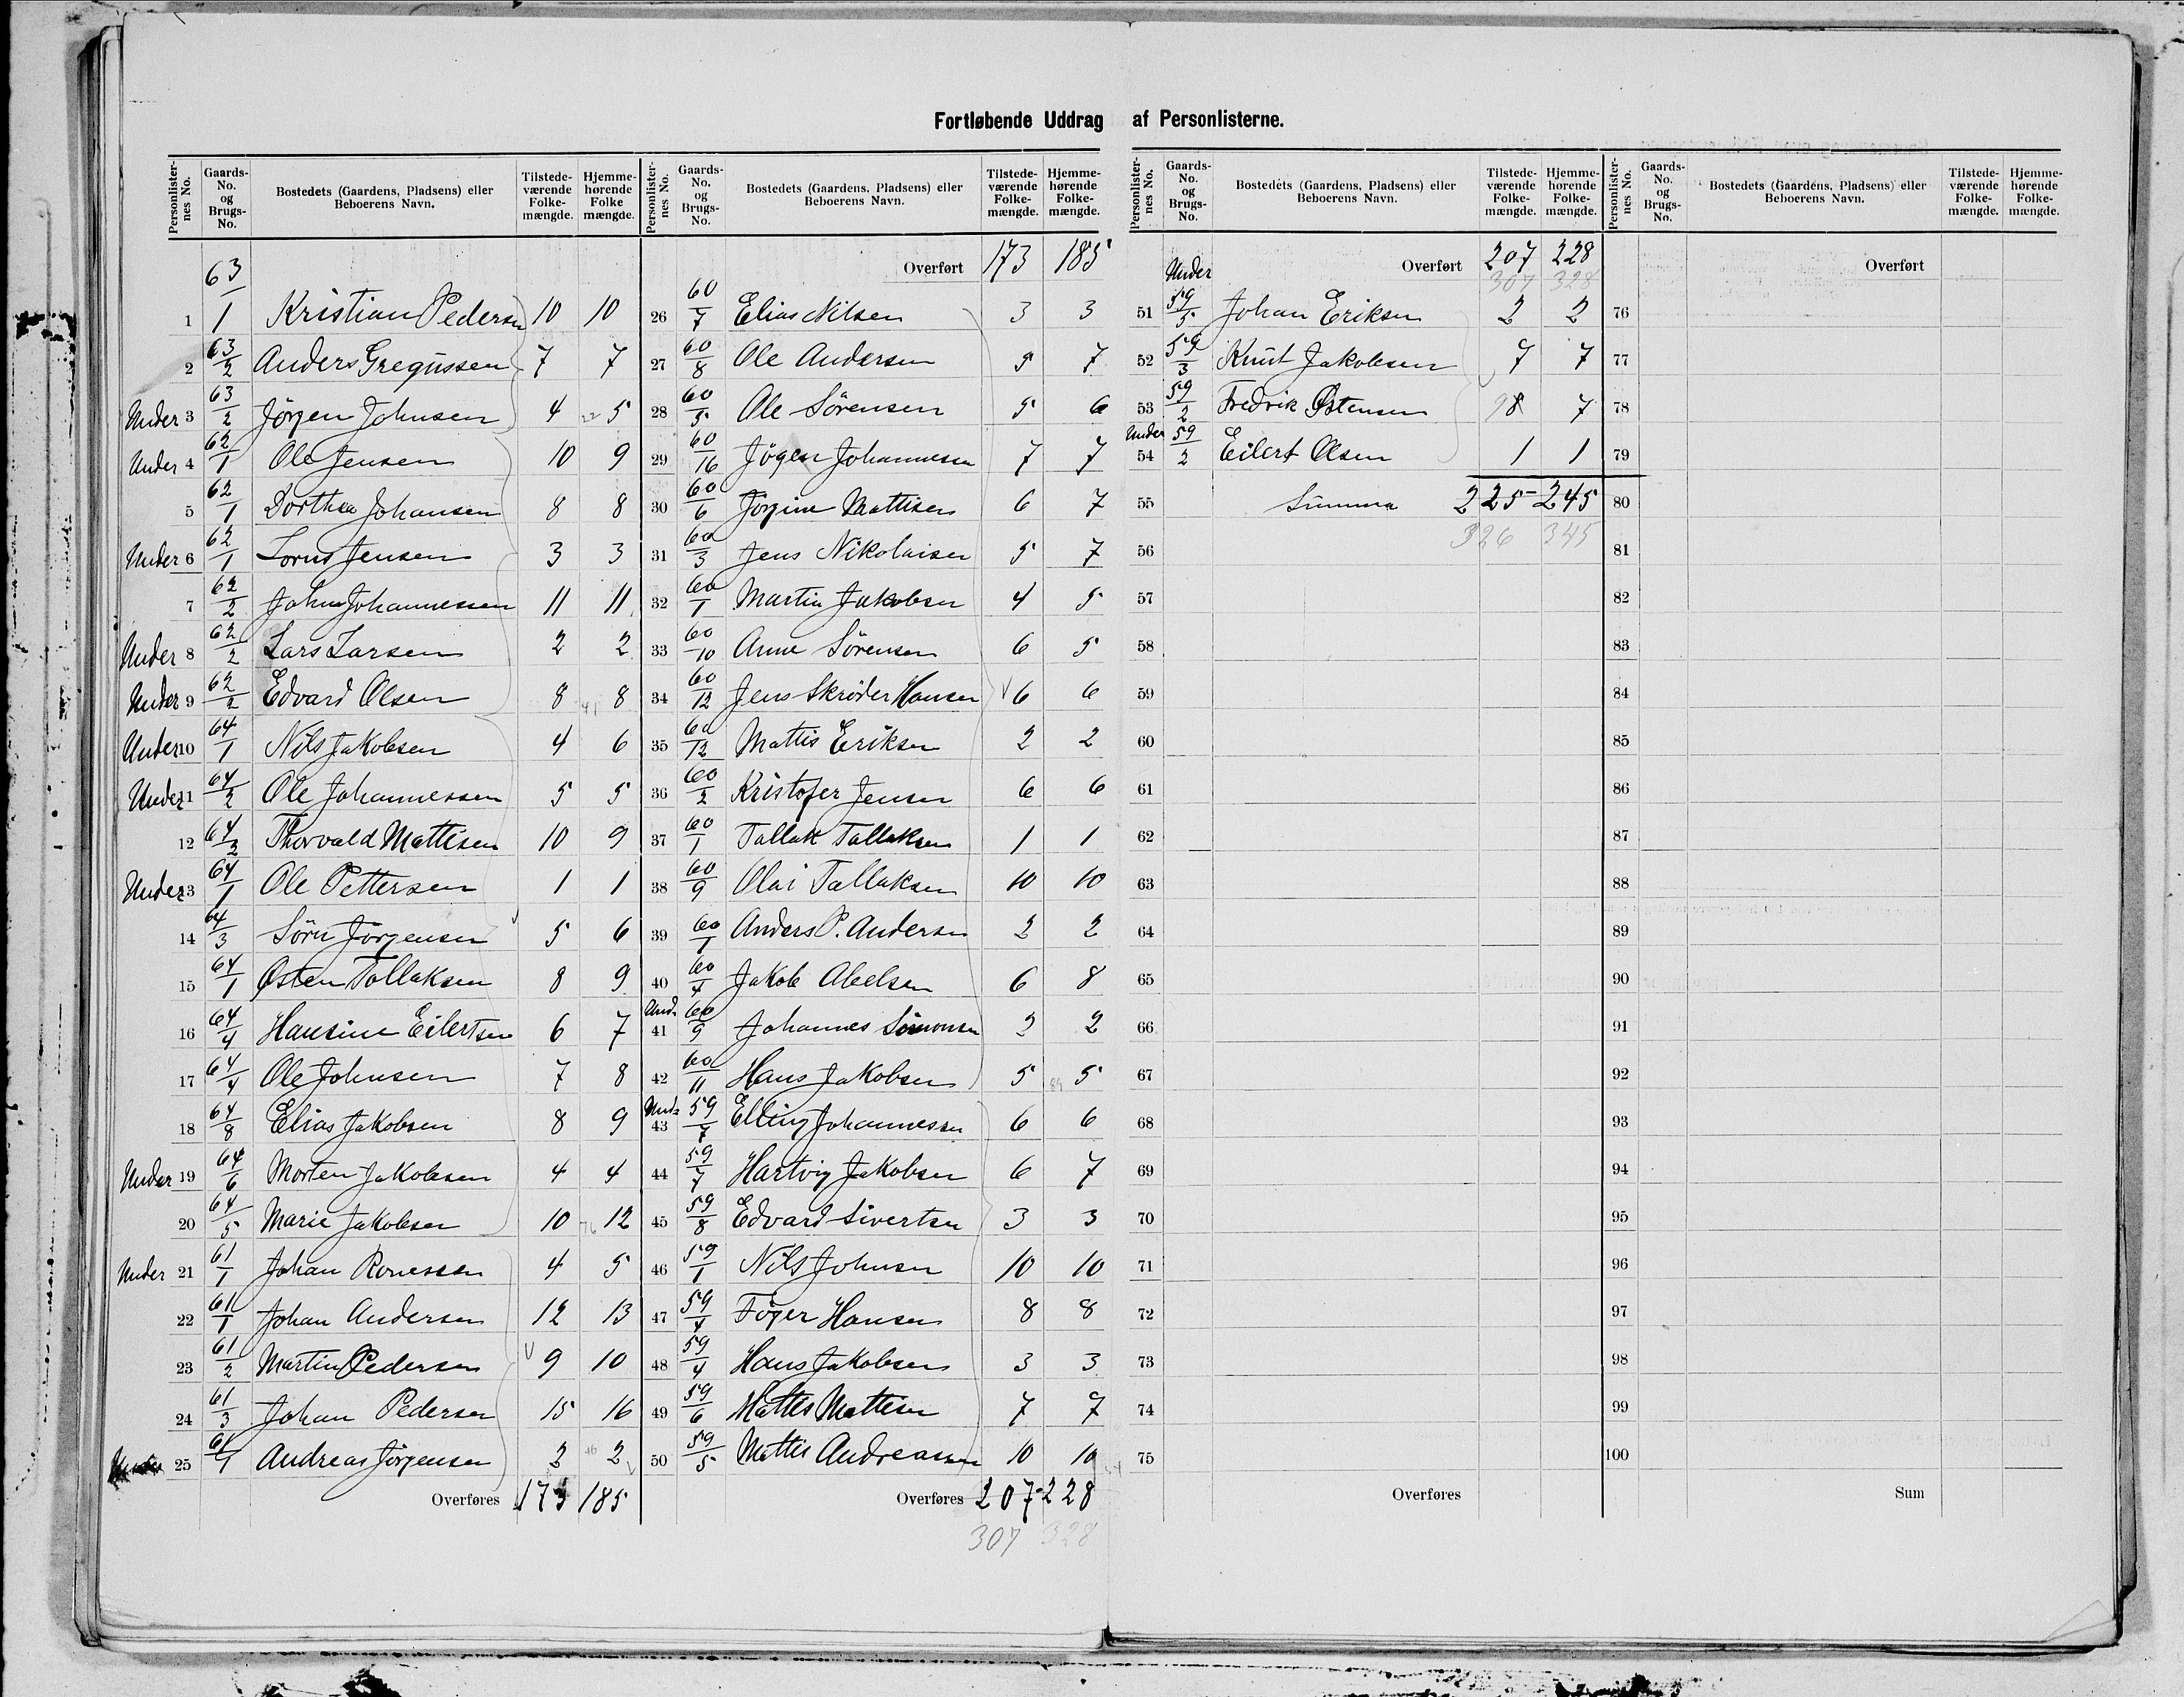 Fortløbende Uddrag af Personlisterne.
Personlister-nes No. Gaards-No. og Brugs-No. Bostedets (Gaardens, Pladsens) eller Beboerens Navn. Tilstede-værende Folke-mængde. Hjemme-hørende Folke mængde.
1 63/1 Kristian Pedersen 10 10
2 63/2 Anders Gregussen 7 7
Under 3 63/2 Jörgen Johnsen 4 22 5
Under 4 62/1 Ole Jensen 10 9
5 62/1 Dorthea Johansen 8 8
Under 6 62/1 Jensen 3 3
7 62/2 Johannessen 11 11
Under 8 62/2 Lars Larsen 2 2
Under 9 62/2 Edvard Olsen 8 41 8
Under 10 64/1 Nils Jakobsen 4 6
Under 11 64/2 Ole Johannessen 5 5
12 64/2 Thorvald Mattisen 10 9
Under 13 64/1 Ole Pettersen 1 1
14 64/3 Sörn Jörgensen 5 6
15 64/1 Østen Tallaksen 8 9
16 64/4 Hansine Eilertsen 6 7
17 64/4 Ole Johnsen 7 8
18 64/8 Elias Jakobsen 8 9
Under 19 64/6 Morten Jakobsen 4 4
20 64/5 Marie Jakobsen 10 76 12
Under 21 61/1 Johan 4 5
22 61/1 Johan Andersen 12 13
23 61/2 Martin Pedersen 9 10
24 61/3 Johan Pedersen 15 16
25 61/1 Andreas Jörgensen 2 46 2
Overføres 173 185
Personlister-nes No. Gaards-No. og Brugs-No. Bostedets (Gaardens, Pladsens) eller Beboerens Navn. Tilstede-værende Folke-mængde. Hjemme-hørende Folke-mængde.
Overført 173 185
26 60/7 Elias Nilsen 3 3
27 60/8 Ole Andersen 5 7
28 60/5 Ole Sörensen 5 6
29 60/16 Jögen Johannessen 7 7
30 60/6 Jörgine Mattisen 6 7
31 60/3 Jens Nikolaisen 5 7
32 60/1 Martin Jakobsen 4 5
33 60/10 Anne Sörensen 6 5
34 60/12 Jens Skröder Hansen 6 6
35 60/12 Mattis Eriksen 2 2
36 60/2 Kristofer Jensen 6 6
37 60/1 Tallak Tallaksen 1 1
38 60/9 Olai Tallaksen 10 10
39 60/1 Anders P. Andersen 2 2
40 60/4 Jakob Abelsen 6 8
Und. 41 60/9 Johannes Simonsen 2 2
42 60/11 Hans Jakobsen 5 89 5
Und. 43 59/7 Elling Johannessen 6 6
44 59/7 Hartvig Jakobsen 6 7
45 59/8 Edvard Sivertsen 3 3
46 59/1 Nils Johnsen 10 10
47 59/4 Föger Hansen 8 8
48 59/4 Hans Jakobsen 3 3
49 59/6 Mattis Mattisen 7 7
50 59/5 Mattis Andreassen 10 10 54
Overføres 207 228
307 328
Personlister-nes No. Gaards-No. og Brugs-No. Bostedets (Gaardens, Pladsens) eller Beboerens Navn. Tilstede-værende Folke-mængde. Hjemme-hørende Folke-mængde.
Overført 207 228
307 328
Under 51 59/5 Johan Eriksen 2 2
52 59/3 Knut Jakobsen 7 7
53 59/2 Fredrik Østensen 98 7
Under 54 59/2 Eilert Olsen 1 1
55 Summa 225 - 245
326 345
56
57
58
59
60
61
62
63
64
65
66
67
68
69
70
71
72
73
74
75
Overføres
Personlister-nes No. Gaards-No. og Brugs-No. Bostedets (Gaardens, Pladsens) eller Beboerens Navn. Tilstede-værende Folke-mængde. Hjemme-hørende Folke-mængde.
Overført
76
77
78
79
80
81
82
83
84
85
86
87
88
89
90
91
92
93
94
95
96
97
98
99
100
Sum